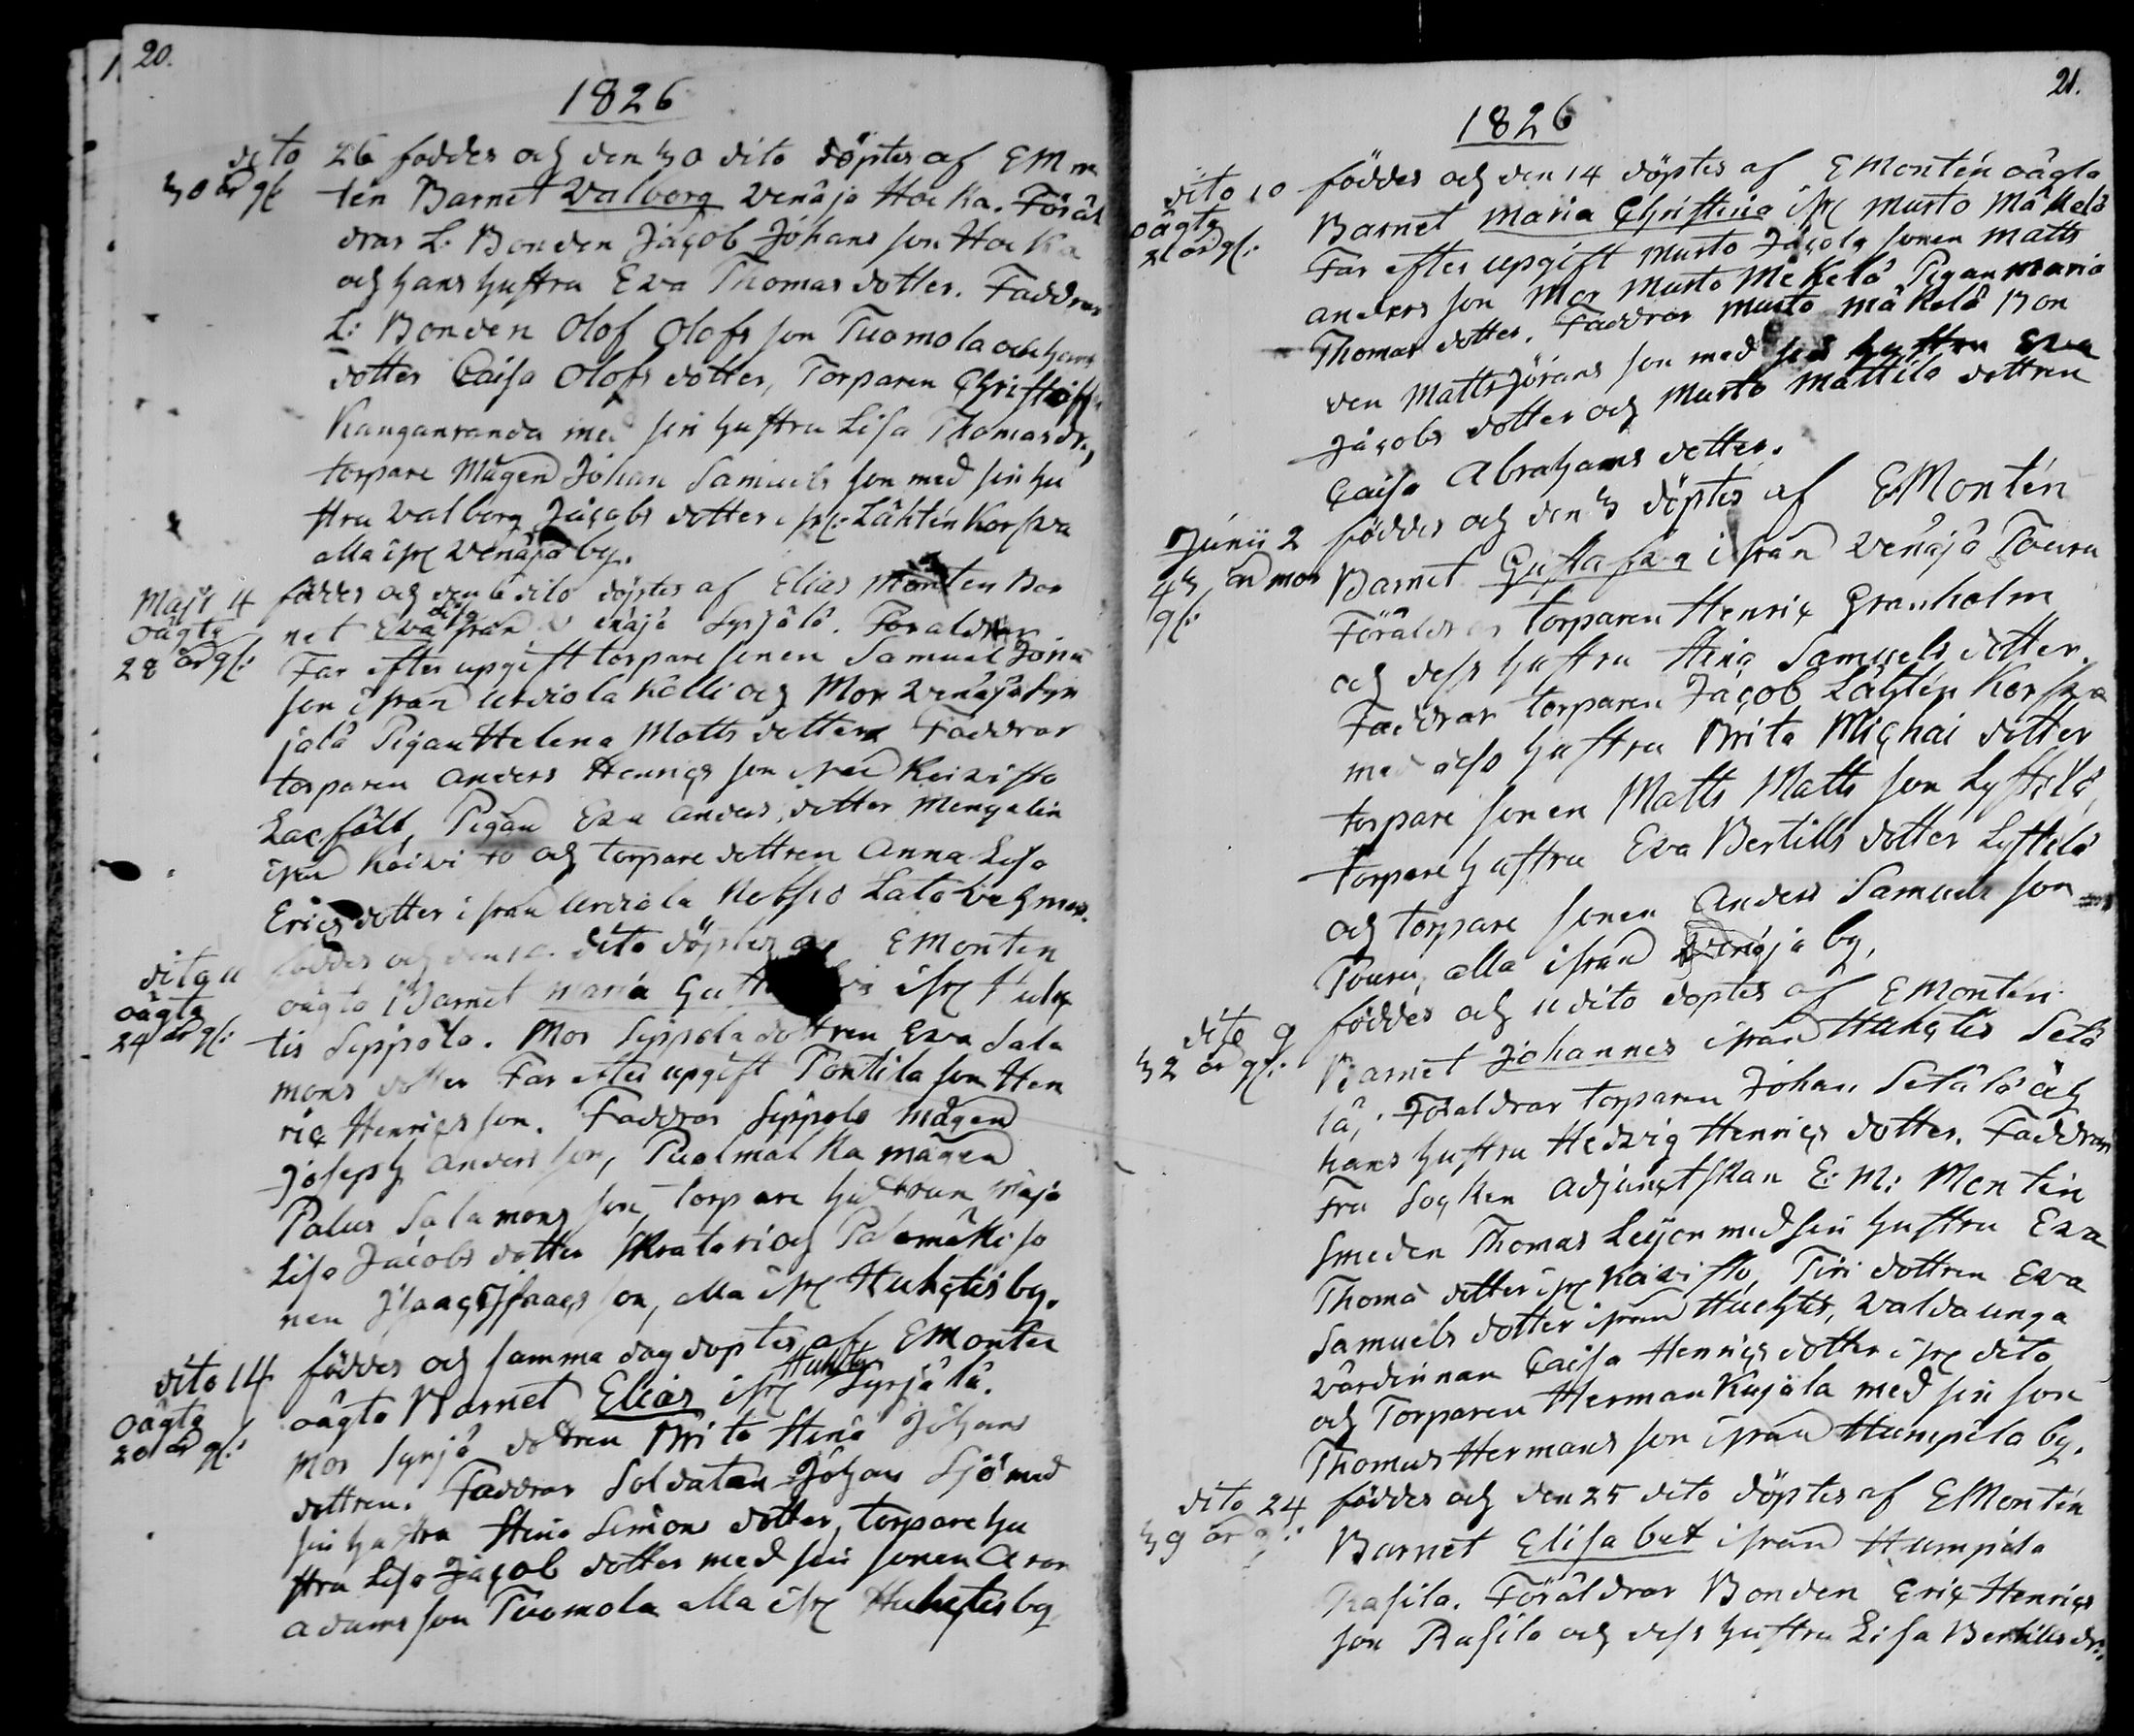 20.
1826
dito 26 foddes och den 30 dito döptes af EMon
30 år gl: tén Barnet Walborg Wenäjä Hoeka. Föräl
drar L: Bonden Jacob Johans son Hoeka
och hans hustru Ewa Thomas dotter. Faddrar
L: Bonden Olof Olofs son Tuomola och hans
dotter Caisa Olofs dotter, Torparen Christoff
Kanganranda med sin hustru Lisa Thomasdr,
torpare Mågen Johan Samuels son med sin hu
stru Walborg Jacobs dotter ifr: Lähtén Korpwa
alla ifr: Wenäjä by.
Maji 4 föddes och den 6 dito döptes af Elias Monten Bar
oägta net Ewa Lisa från Wenäjä Syrjälä. Föräldrar
28 år gl: Far efter upgift torpare sonen Samuel Jonæ
son ifrån Urdiola Kalli och Mor Wenäjä Syr
jälä Pigan Helena Matts dotter Faddrar
torparen Anders Henrics son ifrån Koiwisto
Lacfält, Pigan Ewa Anders dotter Mengelin
ifrån Koiwisto och torpare dottren Anna Lisa
Erics dotter ifrån Urdiola Nohkio Lato
dito 11 föddes och den 12 dito döptes af EMonten
oägta oägta Barnet Maria ifr: Huhg
24 år gl: tis Seppälä. Mor Seppälä dottren Ewa Sala
mons dotter Far efter upgift Pontila son Hen
ric Henrics son. Faddrar Seppälä mågen
Joseph Anders son, Palmalka mågen
Palus Salamons son, torpare hustrun Maja
Lisa Jacobs dotter Skratari och Palomäki so
nen Isaac Isaacs son, alla ifr: Huhgtis by.
dito 14 föddes och samma dag döptes af EMonten
oägta oägta Barnet Elias ifr: Huhgtis Syrjälä.
20 år gl: Mor Syrjä dottren Brita Stina Johans
dottren. Faddrar Soldaten Johan Sjö med
sin hustru Stina Simons dotter, torpare hu
stru Lisa Jacob dotter med sin sonen Aron
Adams son Tuomola alla ifr: Huhgtis by
21.
1826
dito 10 föddes och den 14 döptes af EMontén oägta
oägta Barnet Maria Christina ifr: Musto Mäkelä
21 år gl: Far efter upgift Musto Jacola sonen Matts
Anders son Mor Musto Mäkelä Pigan Maria
Thomas dotter. Faddrar Musto Mäkelä Bon
den Matts Jörans son med sin hustru Ewa
Jacobs dotter och Musto Mattila dottren
Caisa Abrahams dotter.
Junii 2 föddes och den 3 döptes af EMontén
43 år mor Barnet Gustafwa ifrån Wenäjä Touru
gl: Föräldrar torparen Henric Granholm
och dess hustru Stina Samuels dotter.
Faddrar torparen Jacob Lähtén Korpwa
med dess hustru Brita Michai dotter
torpare sonen Matts Matts son Lyttilä,
torpare hustru Ewa Bertills dotter Lyttilä
och torpare sonen Anders Samuels son
Touru, alla ifrån Wenäjä by,
dito 9 föddes och 11 dito döptes af EMontén
32 år gl: Barnet Johannes ifrån Huhgtis Setä
lä, Föräldrar torparen Johan Setälä och
hans hustru Hedvig Henrics dotter. Faddrar
Fru Socken Adjunctskan E: M: Montén
Smeden Thomas Leijon med sin hustru Ewa
Thomä dotter ifr: Koiwisto, Tiri dottren Ewa
Samuels dotter ifrån Huchtis, Walda unga
värdinnan Caisa Henrics dotter ifr: dito
och Torparen Herman Kujala med sin son
Thomas Hermans son ifrån Humpila by.
dito 24 föddes och den 25 dito döptes af EMontén
39 år gl: Barnet Elisabet ifrån Humpila
Rasila. Föräldrar Bonden Eric Henrics
son Rasila och dess hustru Lisa Bertills dr.